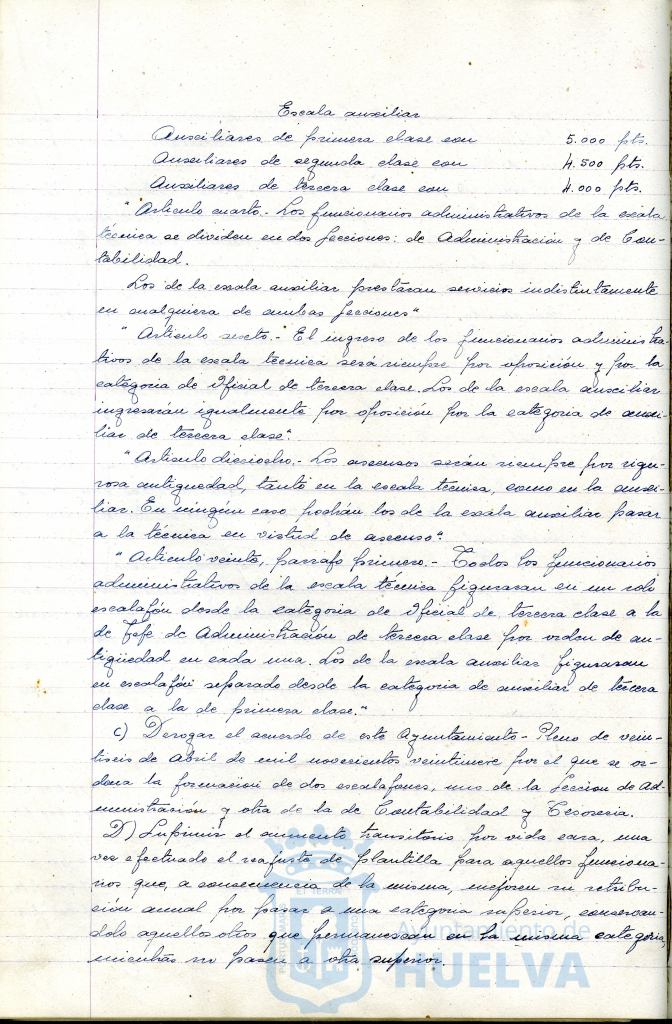 Escala auxiliar
Auxiliares de primera clase con 5.000 pts.
Auxiliares de segunda clase con 4.500 pts.
Auxiliares de tercera clase con 4.000 pts.
"Artículo cuarto.- Los funcionarios administrativos de la escala
técnica se dividen en dos Secciones: de Administración y de Con-
tabilidad.
Los de la escala auxiliar prestarán servicios indistintamente
en cualquiera de ambas Secciones"
"Artículo sexto.- El ingreso de los funcionarios administra
tivos de la escala técnica será siempre por oposición y por la
categoría de Oficial de tercera clase. Los de la escala auxiliar
ingresarán igualmente por oposición por la categoría de auxi-
liar de tercera clase".
"Artículo dieciocho.- Los ascensos serán siempre por rigu-
rosa antiguedad, tanto en la escala técnica, como en la auxi-
liar. En ningún caso podrán los de la escala auxiliar pasar
a la técnica en virtud de ascenso".
"Artículo veinte, párrafo primero.- Todos los funcionarios
administrativos de la escala técnica figurarán en un solo
escalafón desde la categoría de Oficial de tercera clase a la
de Jefe de Administración de tercera clase por orden de an-
tigüedad en cada una. Los de la escala auxiliar figurarán
en escalafón separado desde la categoría de auxiliar de tercera
clase a la de primera clase."
C) Derogar el acuerdo de este Ayuntamiento-Pleno de vein-
tiseis de Abril de mil novecientos veintinueve por el que se or-
dena la formación de dos escalafones, uno de la Sección de Ad-
ministración y otra de la de Contabilidad y Tesorería.
D) Suprimir el aumento transitorio por vida cara, una
vez efectuado el reajuste de plantilla para aquellos funciona-
rios que, a consecuencia de la misma, mejoren su retribu-
ción anual por pasar a una categoría superior, conservan-
dolo aquellos otros que permanezcan en la misma categoría,
mientras no pasen a otra superior.
Ayuntamiento de
HUELVA